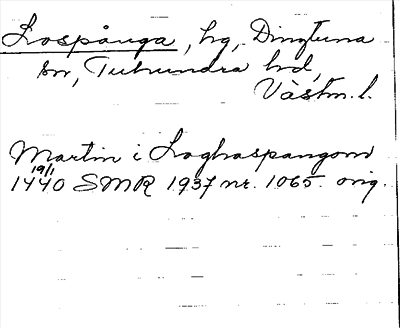 Lospånga, hg, Dingtuna
sn, Tuhundra hd,
Västm. l.
Martin i Loghaspangom
19/1
1440 SMR 1937 nr. 1065. orig.